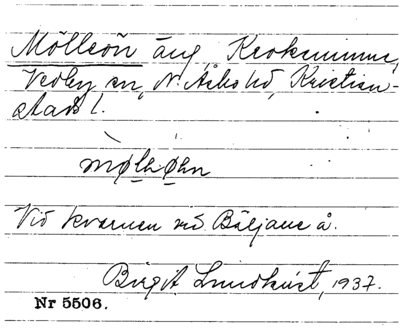 Mölleön äng, Krokminne,
Vedby sn, N. Åsbo hd, Kristian-
stads l.
Vid kvarnen vid Bäljane å.
Birgit Lundkvist, 1937.
Nr 5506.